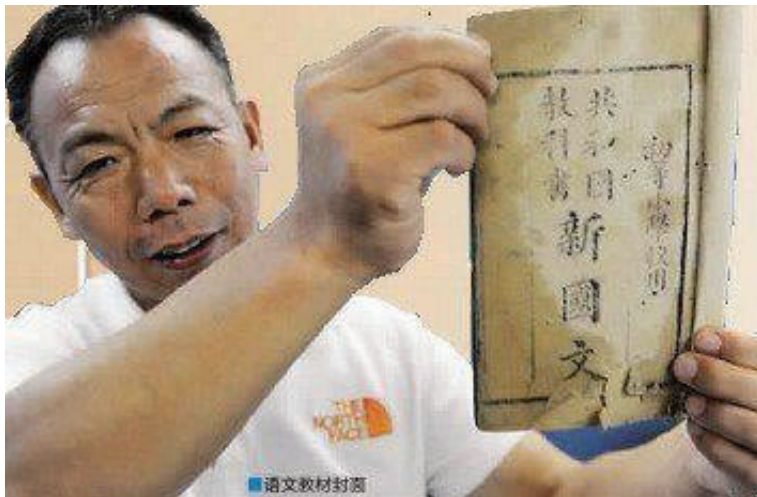 初等小學校用
共和國
教科書
新國文
THE
NORTH
FACE
语文教材封面